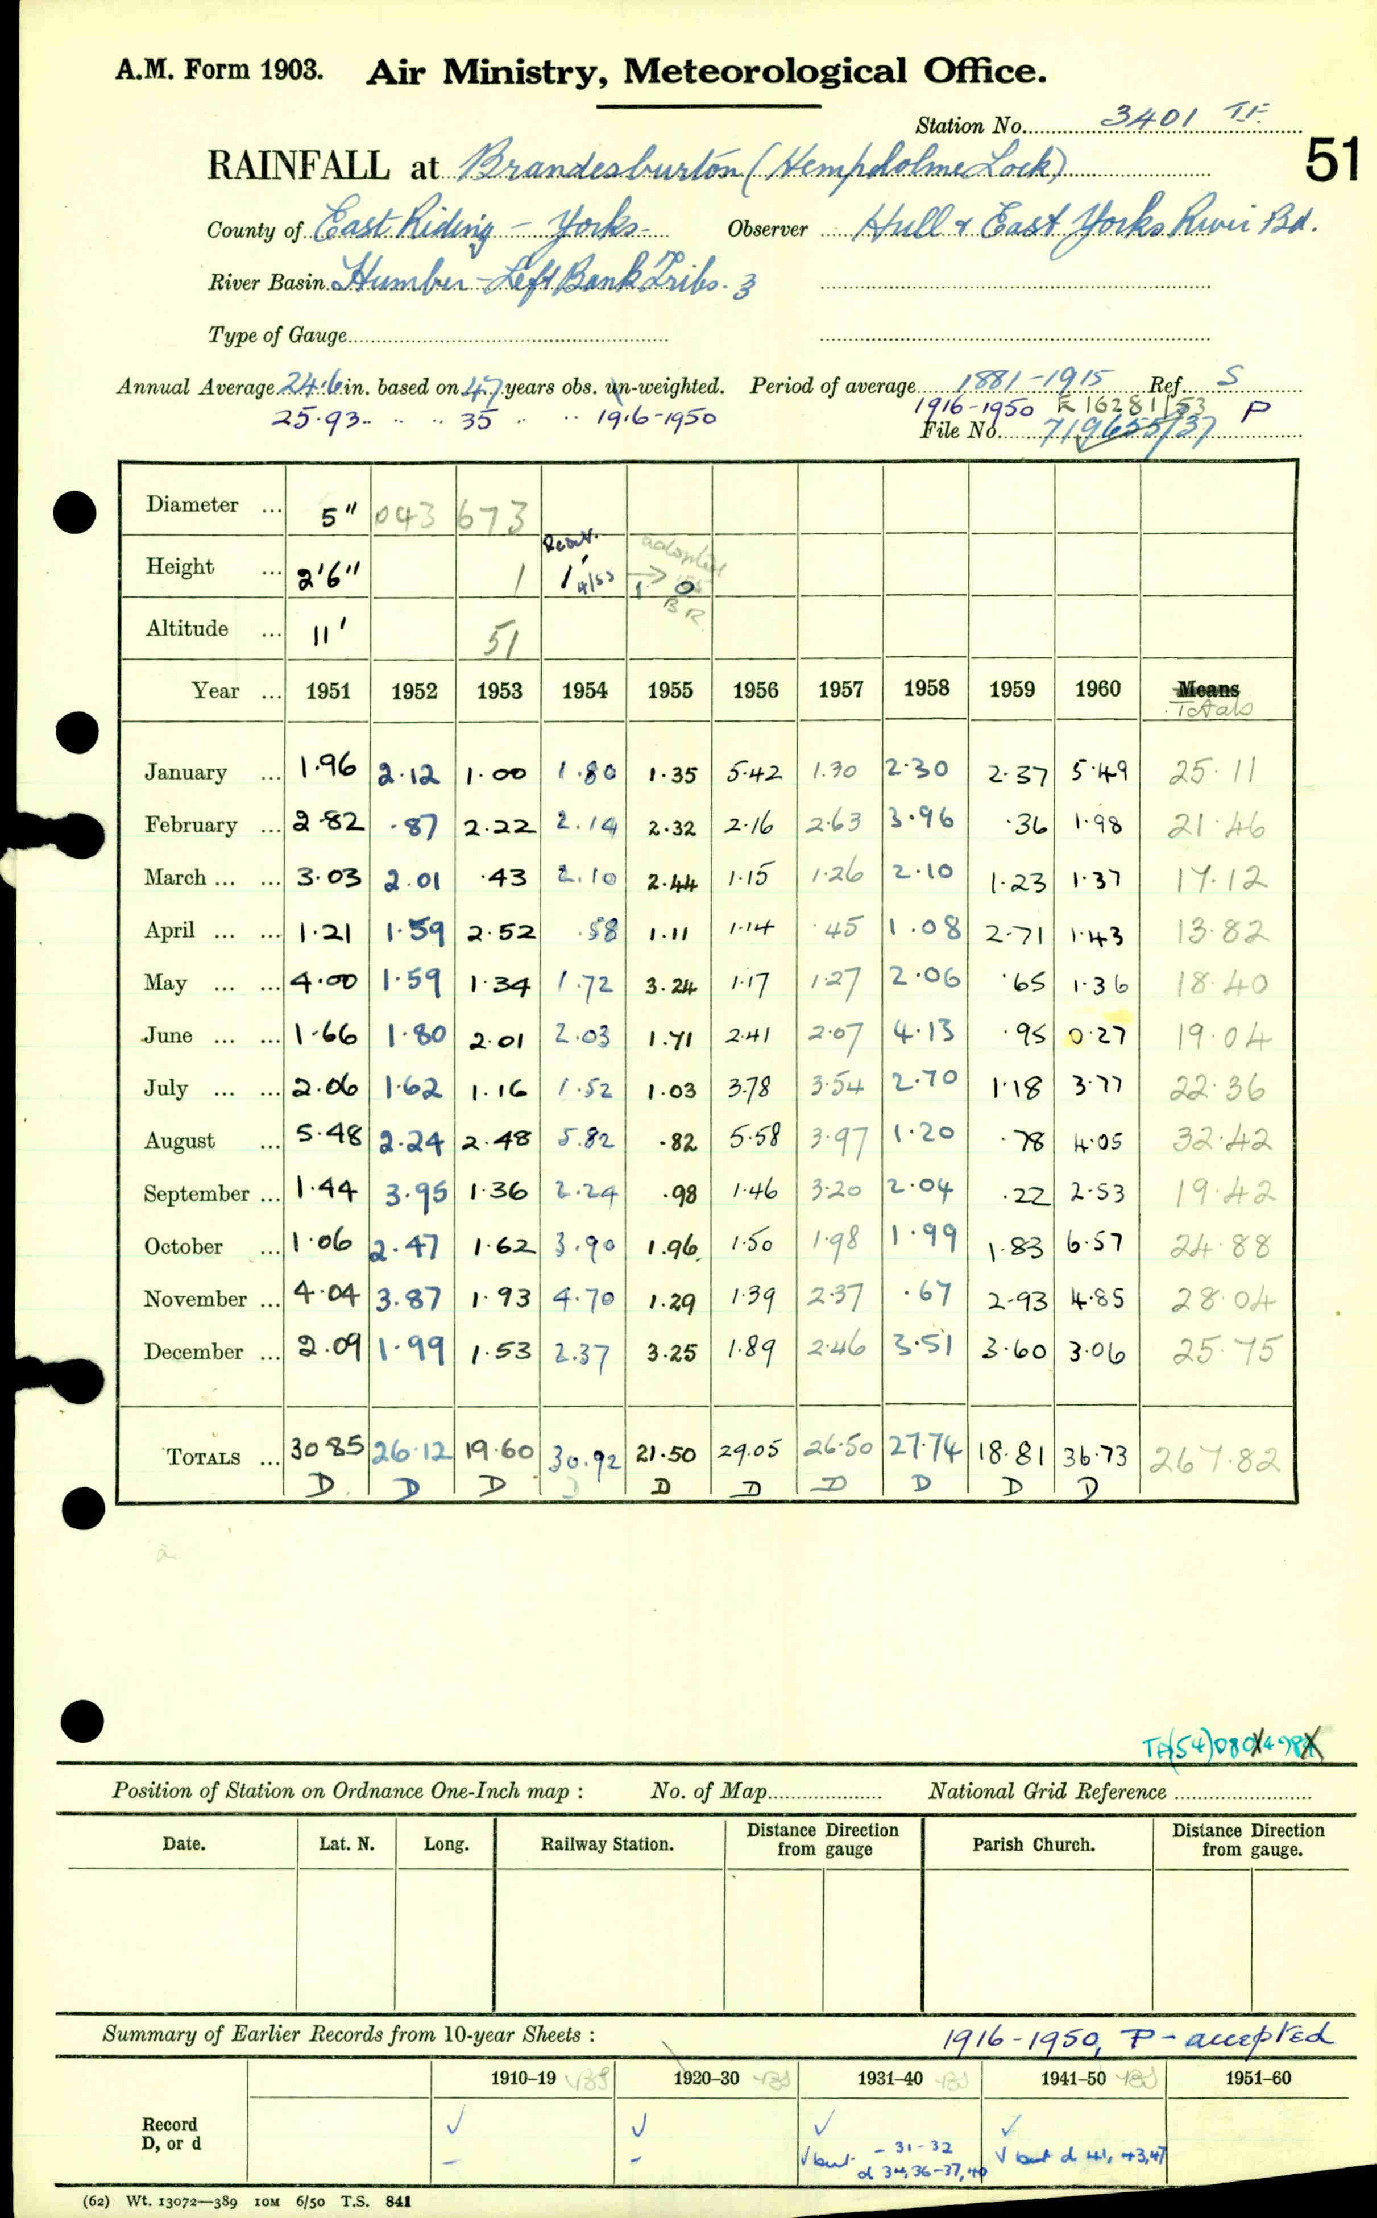 A.M. Form 1903. Air Ministry, Meteorological Office.
Station No. 3401 T.F.
51
RAINFALL at Brandesburton (Hempholme Lock)
County of East Riding - Yorks. Observer Hull & East Yorks River Bd.
River Basin Humber - Left Bank Tribs. 3
Type of Gauge
Annual Average 24.6 in. based on 47 years obs. un-weighted. Period of average 1881-1915 Ref. S
25.93 .. .. .. 35 .. .. 1916-1950 1916-1950 R 16281/53 P
File No. 719655/37
Diameter ... 5" 043 673
Height ... 2'6" 1 Recd. 1' 4/53 adopted → 1 0 BR
Altitude ... 11' 51
Year ... 1951 1952 1953 1954 1955 1956 1957 1958 1959 1960 Means
Totals
January ... 1.96 2.12 1.00 1.80 1.35 5.42 1.30 2.30 2.37 5.49 25.11
February ... 2.82 .87 2.22 2.14 2.32 2.16 2.63 3.96 .36 1.98 21.46
March ... ... 3.03 2.01 .43 2.10 2.44 1.15 1.26 2.10 1.23 1.37 17.12
April ... ... 1.21 1.59 2.52 .58 1.11 1.14 .45 1.08 2.71 1.43 13.82
May ... ... 4.00 1.59 1.34 1.72 3.24 1.17 1.27 2.06 .65 1.36 18.40
June ... ... 1.66 1.80 2.01 2.03 1.71 2.41 2.07 4.13 .95 0.27 19.04
July ... ... 2.06 1.62 1.16 1.52 1.03 3.78 3.54 2.70 1.18 3.77 22.36
August ... 5.48 2.24 2.48 5.82 .82 5.58 3.97 1.20 .78 4.05 32.42
September ... 1.44 3.95 1.36 2.24 .98 1.46 3.20 2.04 .22 2.53 19.42
October ... 1.06 2.47 1.62 3.90 1.96 1.50 1.98 1.99 1.83 6.57 24.88
November ... 4.04 3.87 1.93 4.70 1.29 1.39 2.37 .67 2.93 4.85 28.04
December ... 2.09 1.99 1.53 2.37 3.25 1.89 2.46 3.51 3.60 3.06 25.75
TOTALS ... 30.85 26.12 19.60 30.92 21.50 29.05 26.50 27.74 18.81 36.73 267.82
D D D D D D D D D D
TA(54)080498
Position of Station on Ordnance One-Inch map : No. of Map National Grid Reference
Date. Lat. N. Long. Railway Station. Distance Direction from gauge Parish Church. Distance Direction from gauge.
Summary of Earlier Records from 10-year Sheets : 1916-1950, P - accepted
1910–19 1920–30 1931–40 1941–50 1951–60
Record ✓ ✓ ✓ ✓
D, or d - - ✓ but - 31-32 d 34, 36-37, 40 ✓ but d 41, 43, 47
(62) Wt. 13072—389 10M 6/50 T.S. 841